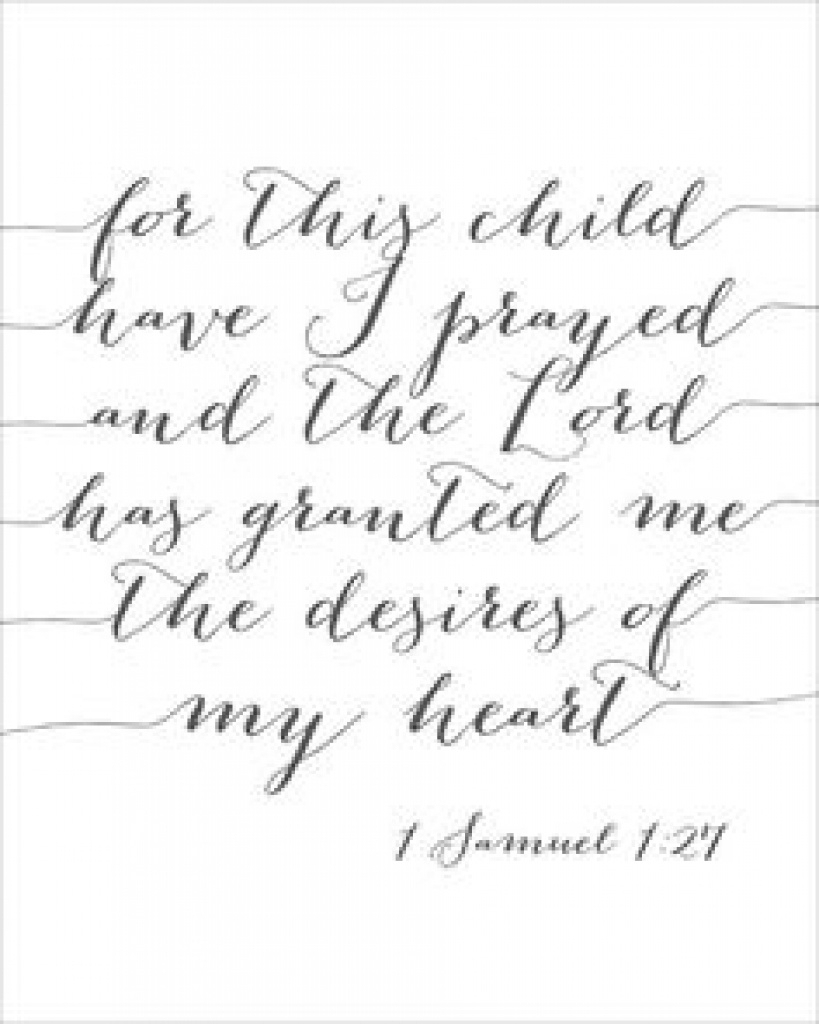 for this child
have I prayed
and the Lord
has granted me
the desires of
my heart
1 Samuel 1:27